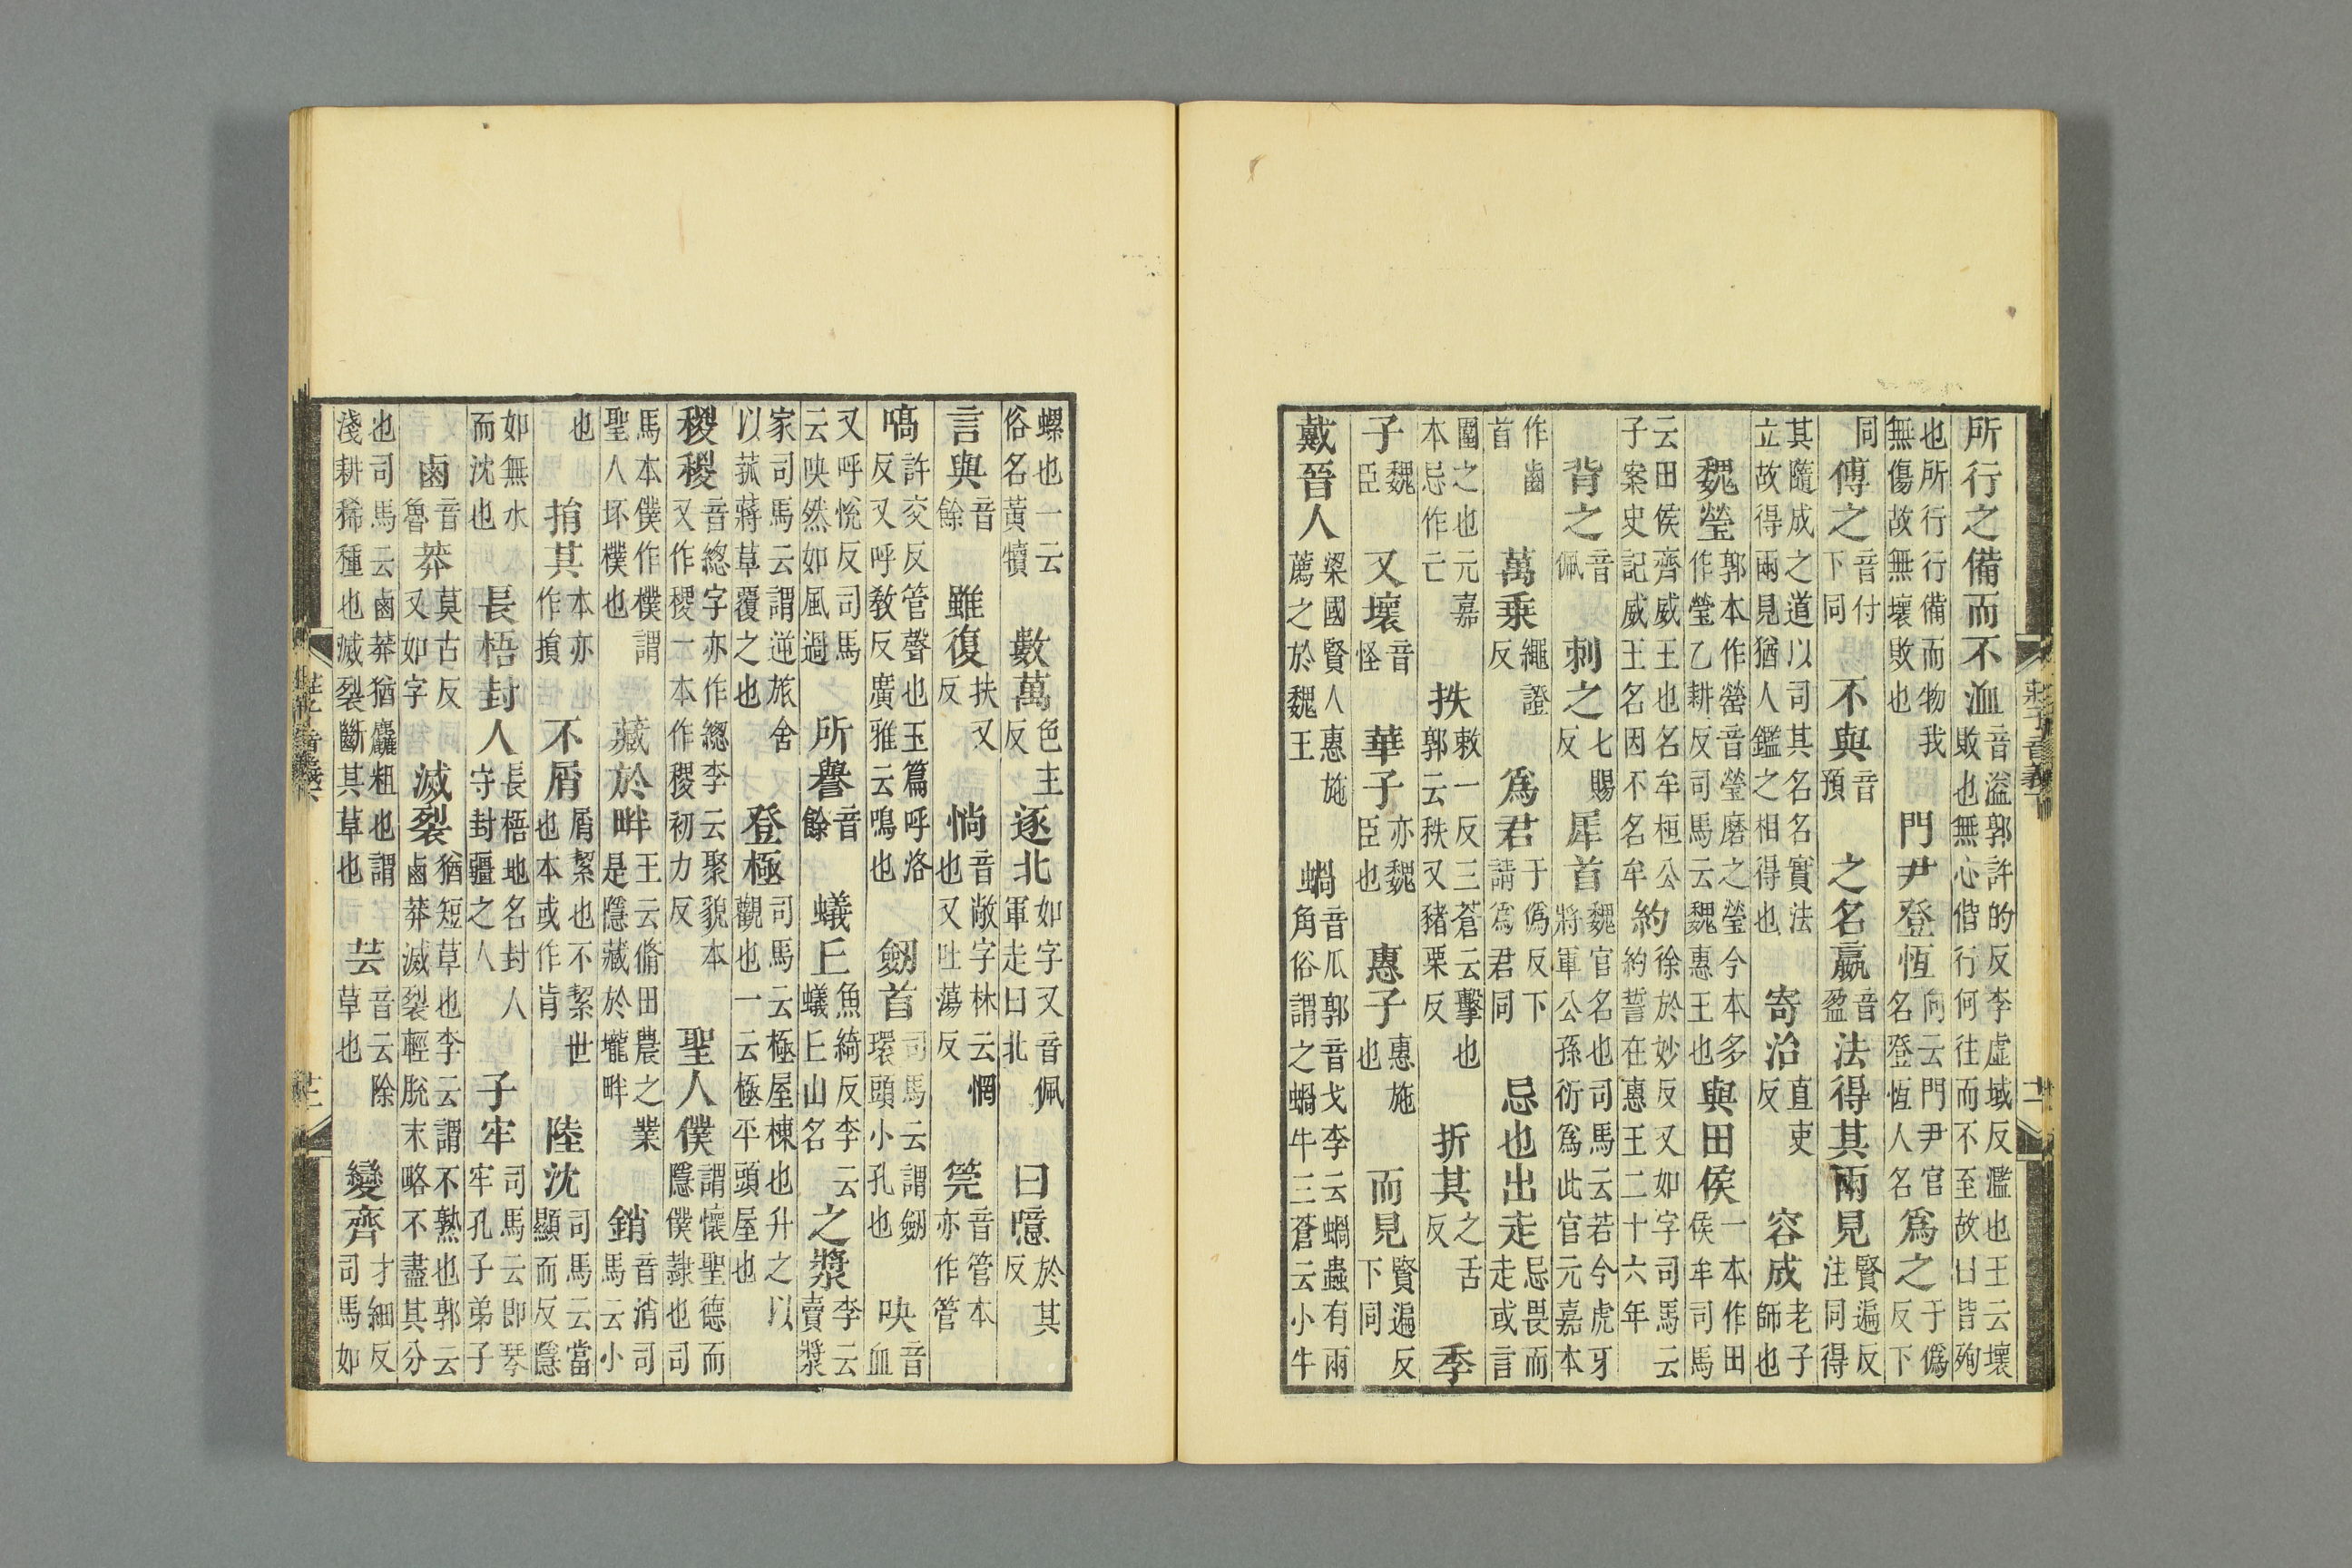 所行之備而不洫音溢郭許的反李虛域反濫也王云壞敗也無心偕行何往而不至故曰皆殉
也所行行備而物我無傷故無壞敗也門尹登恆向云門尹官名登恆人名爲之于僞反下
同傅之音付下同不與音預之名嬴音盈法得其兩見賢遍反注同得
其隨成之道以司其名名實法立故得兩見猶人鑑之相得也寄治直吏反容成老子師也
魏瑩郭本作罃音瑩磨之瑩今本多作瑩乙耕反司馬云魏惠王也與田侯一本作田侯牟司馬
云田侯齊威王也名牟桓公子案史記威王名因不名牟約徐於妙反又如字司馬云約誓在惠王二十六年
背之音佩刺之七賜反犀首魏官名也司馬云若今虎牙將軍公孫衍爲此官元嘉本
作齒首萬乗繩證反爲君于僞反下請爲君同忌也出走忌畏而走或言
圍之也元嘉本忌作亡抶敕一反三蒼云擊也郭云秩又豬栗反折其之舌反季
子魏臣又壞音怪華子亦魏臣也惠子惠施也而見賢遍反下同
戴晉人梁國賢人惠施薦之於魏王蝸音瓜郭音戈李云蝸蟲有兩角俗謂之蝸牛三蒼云小牛
莊子音義下
螺也一云俗名黃犢數萬色主反逐北如字又音佩軍走曰北曰噫於其反
言與音餘雖復扶又反惝音敞字林云惘也又吐蕩反筦音管本亦作管
嗃許交反管聲也玉篇呼洛反又呼敎反廣雅云鳴也劒首司馬云謂劒環頭小孔也吷音血
又呼悅反司馬云吷然如風過所譽音餘蟻丘魚綺反李云蟻丘山名之漿李云賣漿
家司馬云謂逆旅舍以菰蔣草覆之也登極司馬云極屋棟也升之以觀也一云極平頭屋也
稯稯音緫字亦作緫李云聚貌本又作稷一本作稷初力反聖人僕謂懷聖德而隱僕隷也司
馬本僕作樸謂聖人坏樸也藏於畔王云脩田農之業是隱藏於壠畔銷音消司馬云小
也捎其本亦作損不屑屑絜也不絜世也本或作肯陸沈司馬云當顯而反隱
如無水而沈也長梧封人長梧地名封人守封疆之人子牢司馬云即琴牢孔子弟子
鹵音魯莽莫古反又如字滅裂猶短草也李云謂不熟也郭云鹵莽滅裂輕脫末略不盡其分
也司馬云鹵莽猶麤粗也謂淺耕稀種也滅裂斷其草也芸音云除草也變齊才細反司馬如